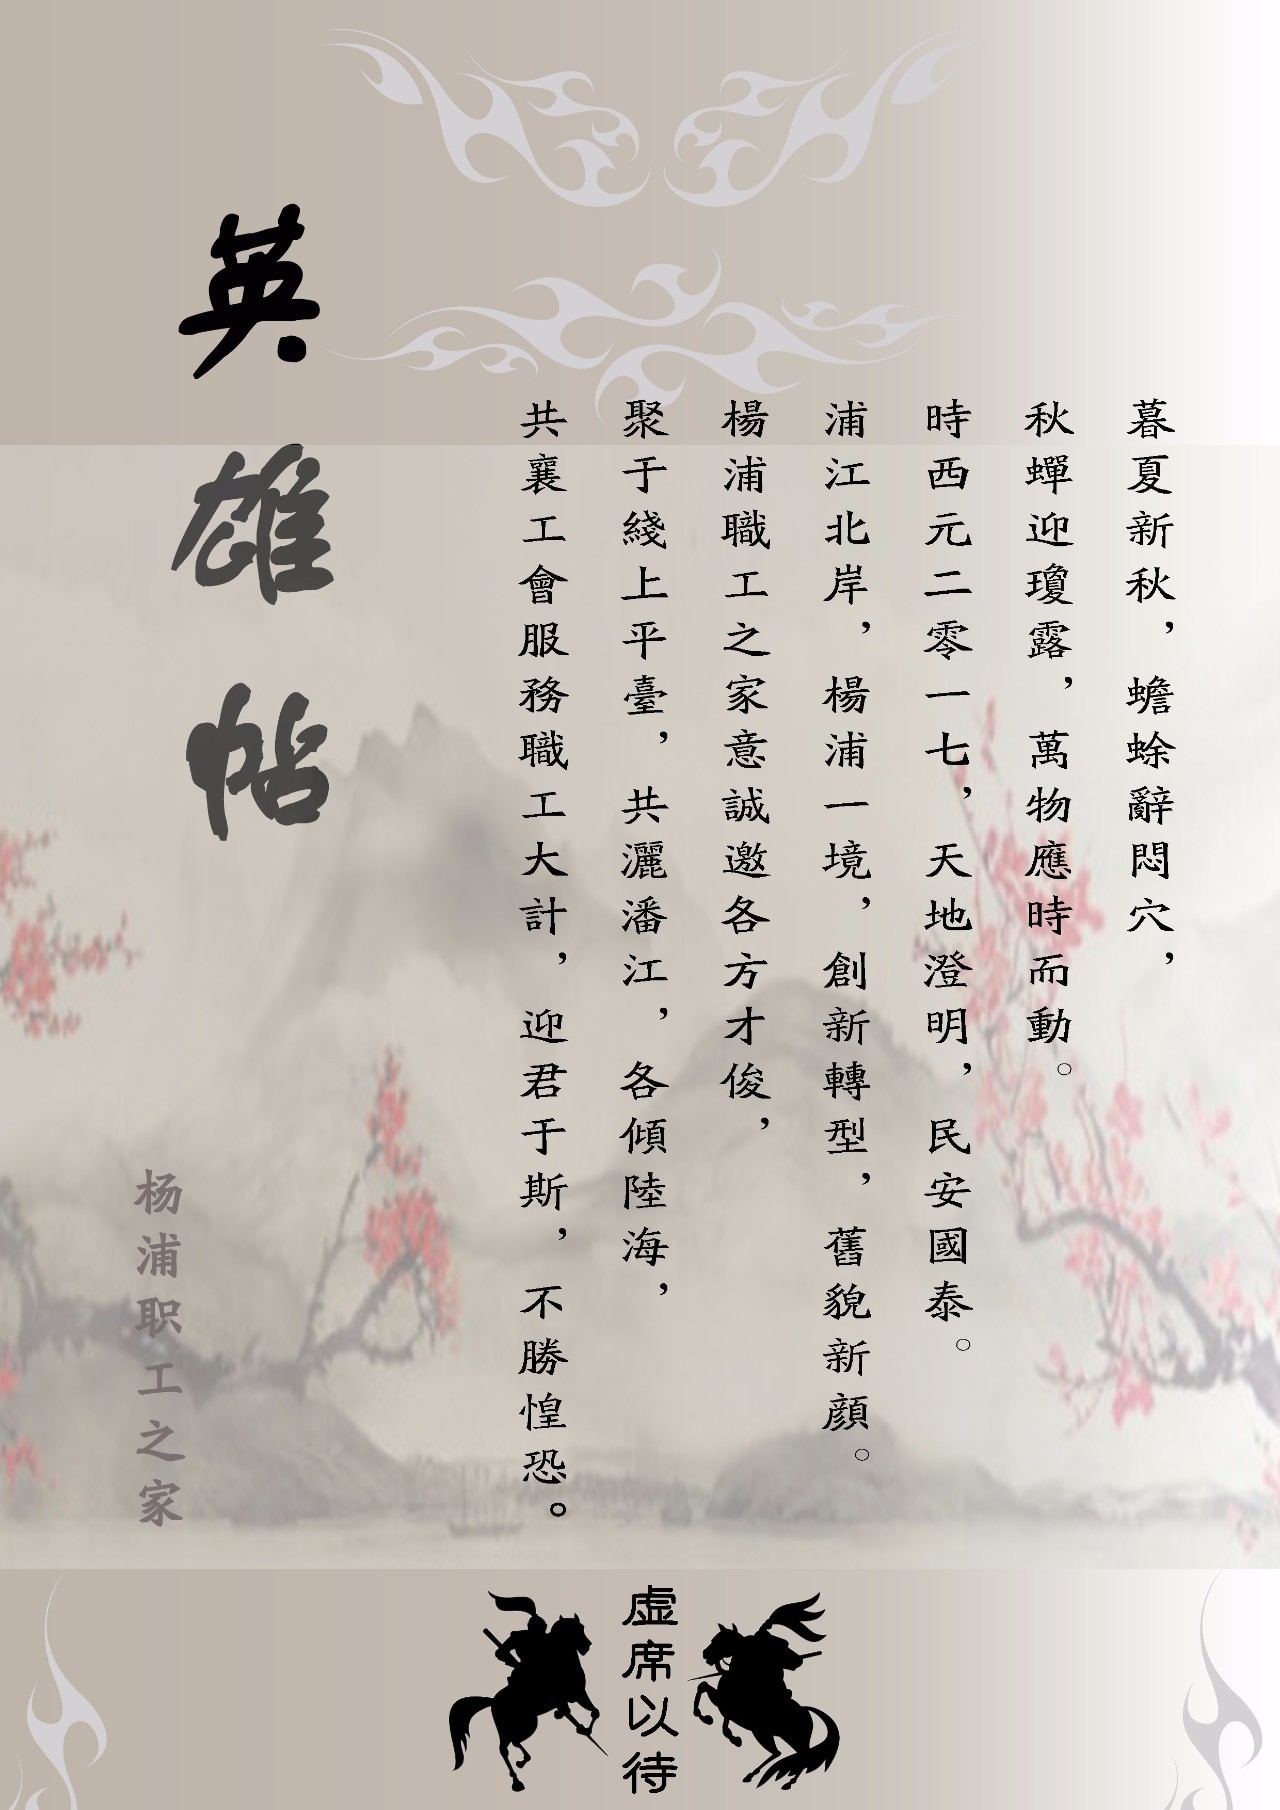 暮夏新秋，蟾蜍辭悶穴，
秋蟬迎瓊露，萬物應時而動。
時西元二零一七，天地澄明，民安國泰。
浦江北岸，楊浦一境，創新轉型，舊貌新顏。
楊浦職工之家意誠邀各方才俊，
聚于綫上平臺，共灑潘江，各傾陸海，
共襄工會服務職工大計，迎君于斯，不勝惶恐。
英雄帖
杨浦职工之家
虚席以待